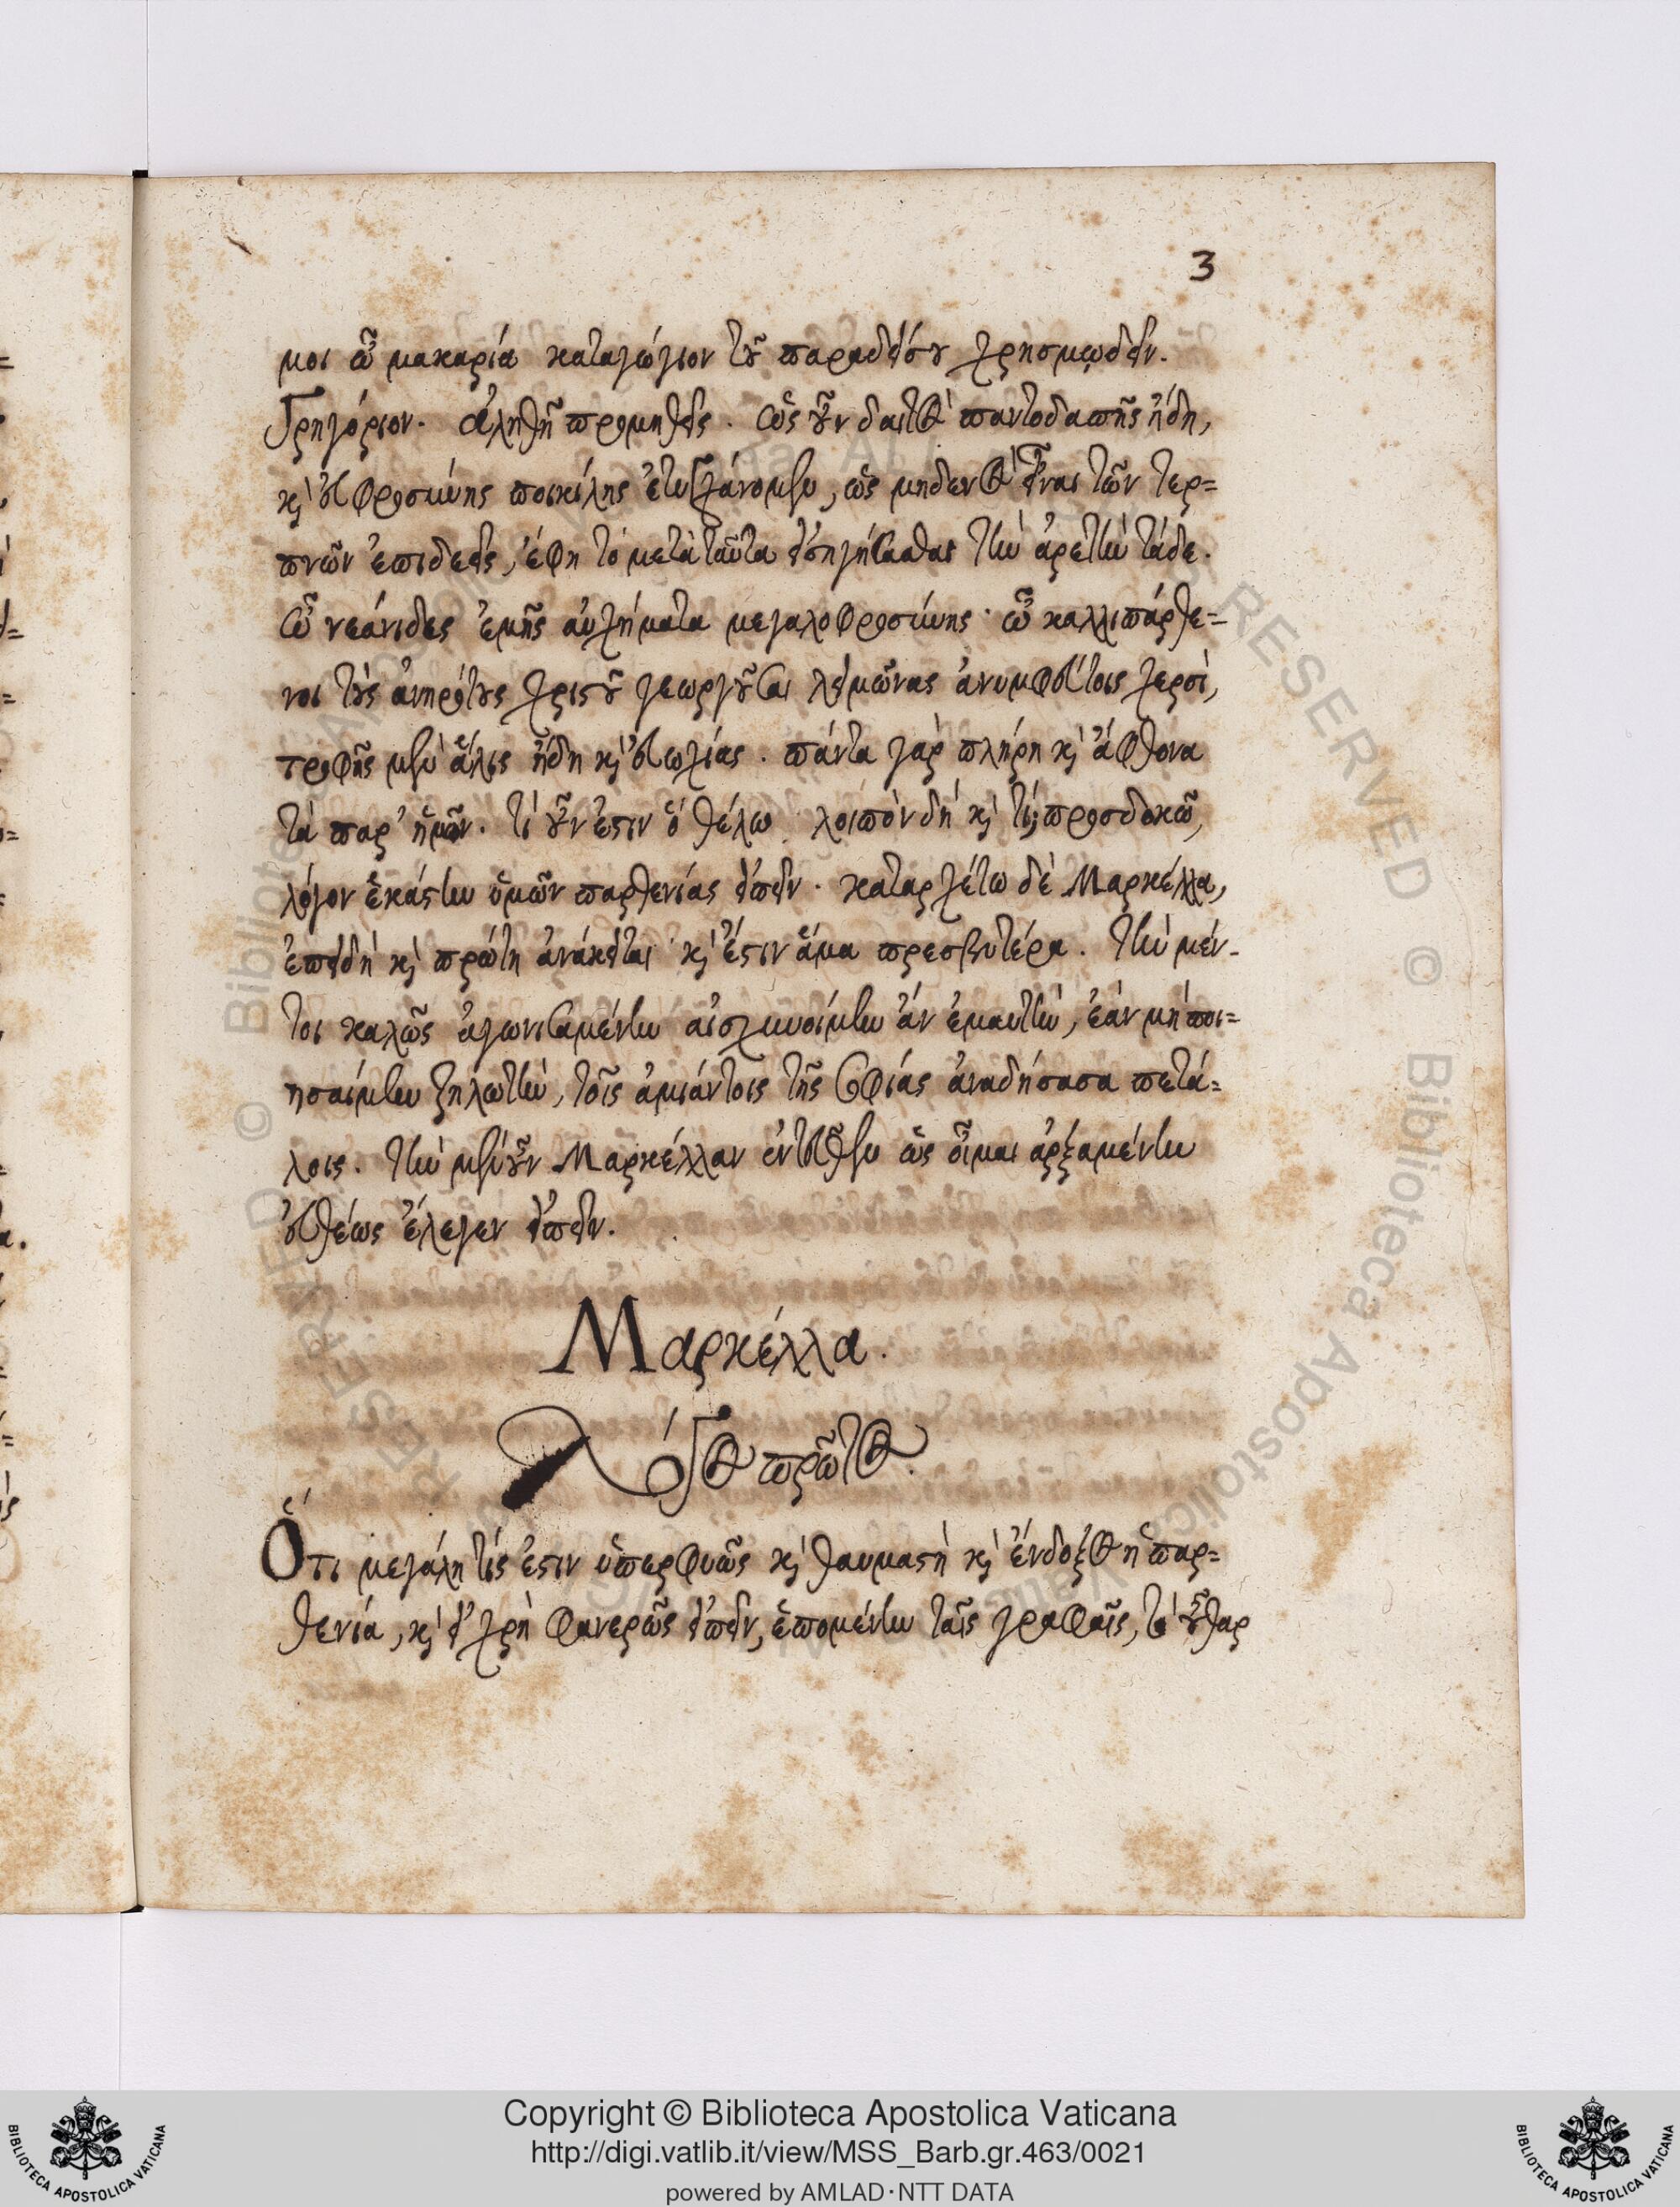 3
μοι ὦ μακαρία καταγώγιον τοῦ παραδείσου χρησμῳδεῖν.
Γρηγόριον. ἀληθῆ προμηθεῖς. ὡς οὖν δαιτὸς παντοδαπῆς ἤδη,
κὶ εὐφροσύνης ποικίλης ἐτυγχάνομεν, ὡς μηδενὸς εἶναι τῶν τερ=
πνῶν ἐπιδεεῖς, ἔφη τὸ μετὰ ταῦτα εἰσηγήσασθαι τὴν ἀρετὴν τάδε.
ὦ νεάνιδες ἐμῆς αὐχήματα μεγαλοφροσύνης· ὦ καλλιπάρθε=
νοι τοὺς ἀνηρότους χριστοῦ γεωργοῦσαι λειμῶνας ἀνυμφεύτοις χερσὶ,
τροφῆς μὲν ἅλις ἤδη κὶ εὐωχίας. πάντα γὰρ πλήρη κὶ ἄφθονα
τὰ παρ' ἡμῶν. τί οὖν ἐστιν ὃ θέλω λοιπὸν δὴ κὶ τί; προσδοκῶ,
λόγον ἑκάστην ὑμῶν παρθενίας εἰπεῖν. καταρχέτω δὲ Μαρκέλλα,
ἐπειδὴ κὶ πρώτη ἀνάκειται κὶ ἔστιν ἅμα πρεσβυτέρα. τὴν μέν-
τοι καλῶς ἀγωνισαμένην αἰσχυνοίμην ἂν ἐμαυτὴν, ἐὰν μὴ ποι=
ησαίμην ζηλωτὴν, τοῖς ἀμιάντοις τῆς σοφίας ἀναδήσασα πετά=
λοις. τὴν μὲν οὖν Μαρκέλλαν ἐντεῦθεν ὡς οἶμαι ἀρξαμένην
εὐθέως ἔλεγεν εἰπεῖν.
Μαρκέλλα.
Λόγος πρῶτος.
Ὅτι μεγάλη τίς ἐστιν ὑπερφυῶς κὶ θαυμαστὴ κὶ ἔνδοξος ἡ παρ=
θενία, κὶ εἰ χρὴ φανερῶς εἰπεῖν, ἑπομένην ταῖς γραφαῖς, τὸ οὖθαρ
Copyright © Biblioteca Apostolica Vaticana
http://digi.vatlib.it/view/MSS_Barb.gr.463/0021
powered by AMLAD·NTT DATA
BIBLIOTECA APOSTOLICA VATICANA
BIBLIOTECA APOSTOLICA VATICANA